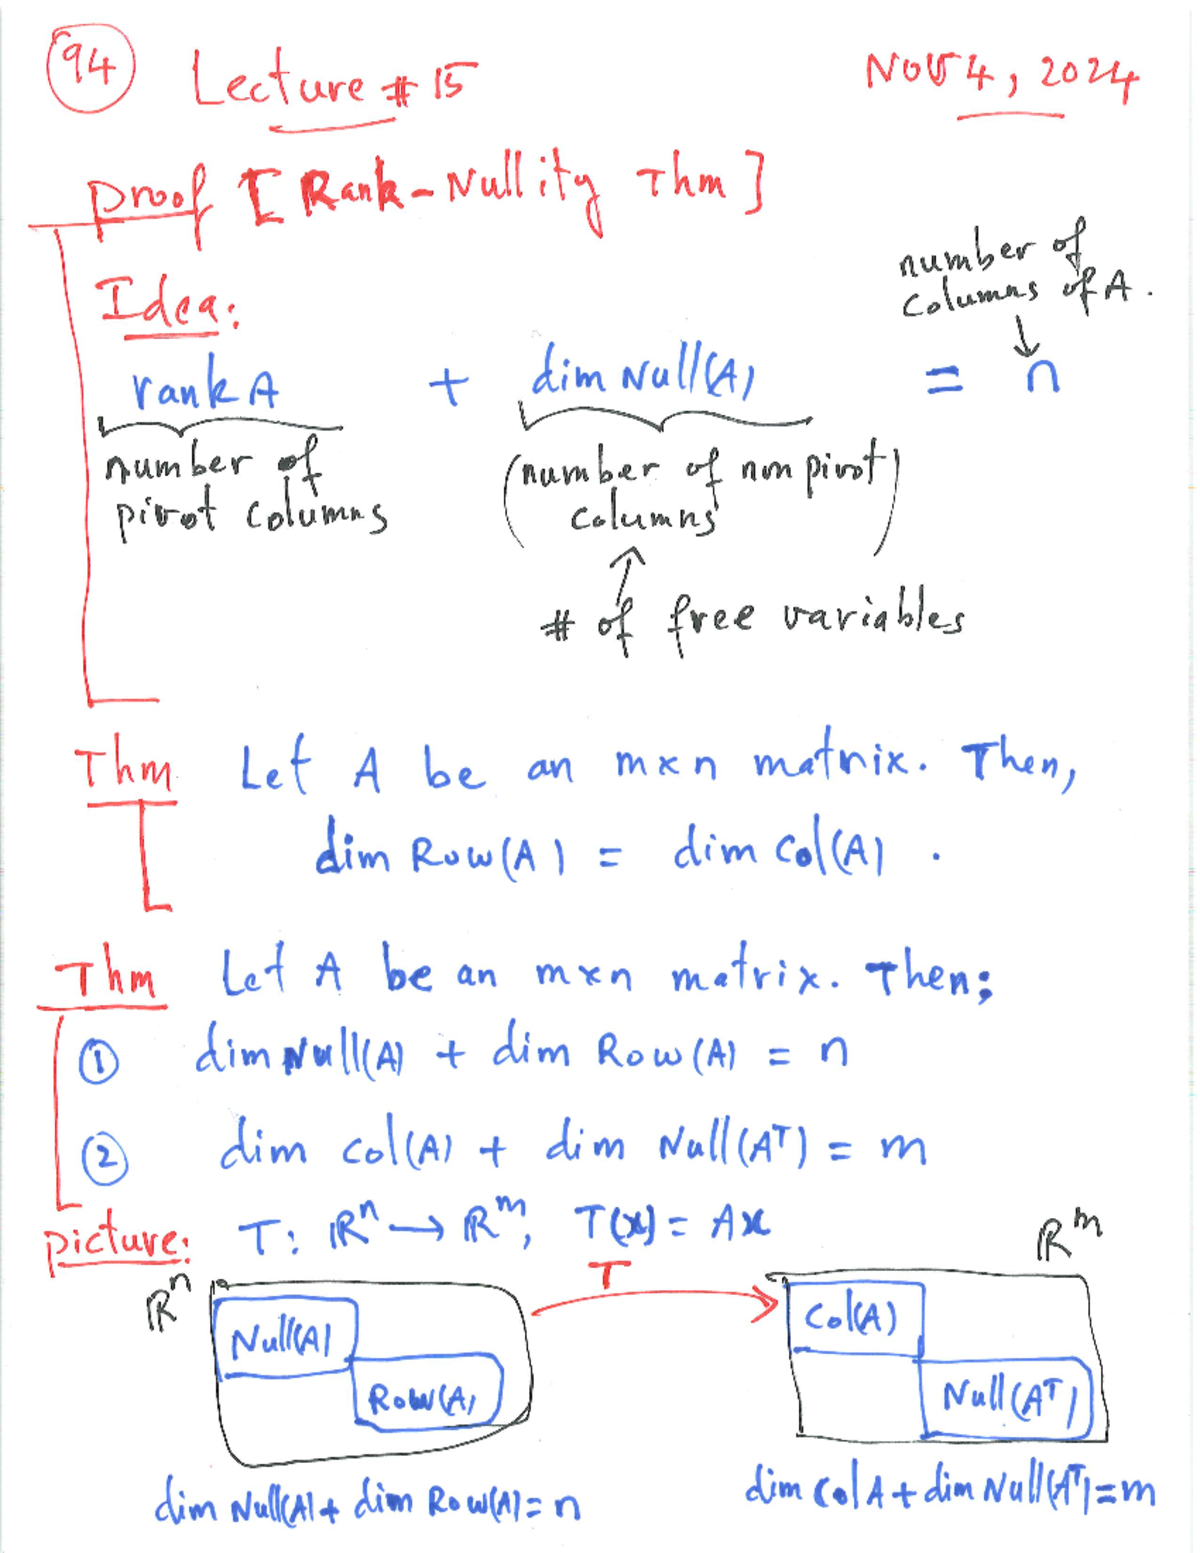 94 Lecture # 15 NOV 4, 2024
Proof [Rank-Nullity Thm]
number of
columns of A.
Idea: ↓
rank A + dim Null(A) = n
number of (number of non pivot)
pivot columns columns
↑
# of free variables
Thm Let A be an m×n matrix. Then,
dim Row(A) = dim Col(A).
Thm Let A be an m×n matrix. Then;
① dim Null(A) + dim Row(A) = n
② dim Col(A) + dim Null(Aᵀ) = m
picture: T: ℝⁿ → ℝᵐ, T(x) = Ax
ℝⁿ T ℝᵐ
Null(A) Col(A)
Row(A) Null(Aᵀ)
dim Null(A) + dim Row(A) = n dim Col A + dim Null(Aᵀ) = m